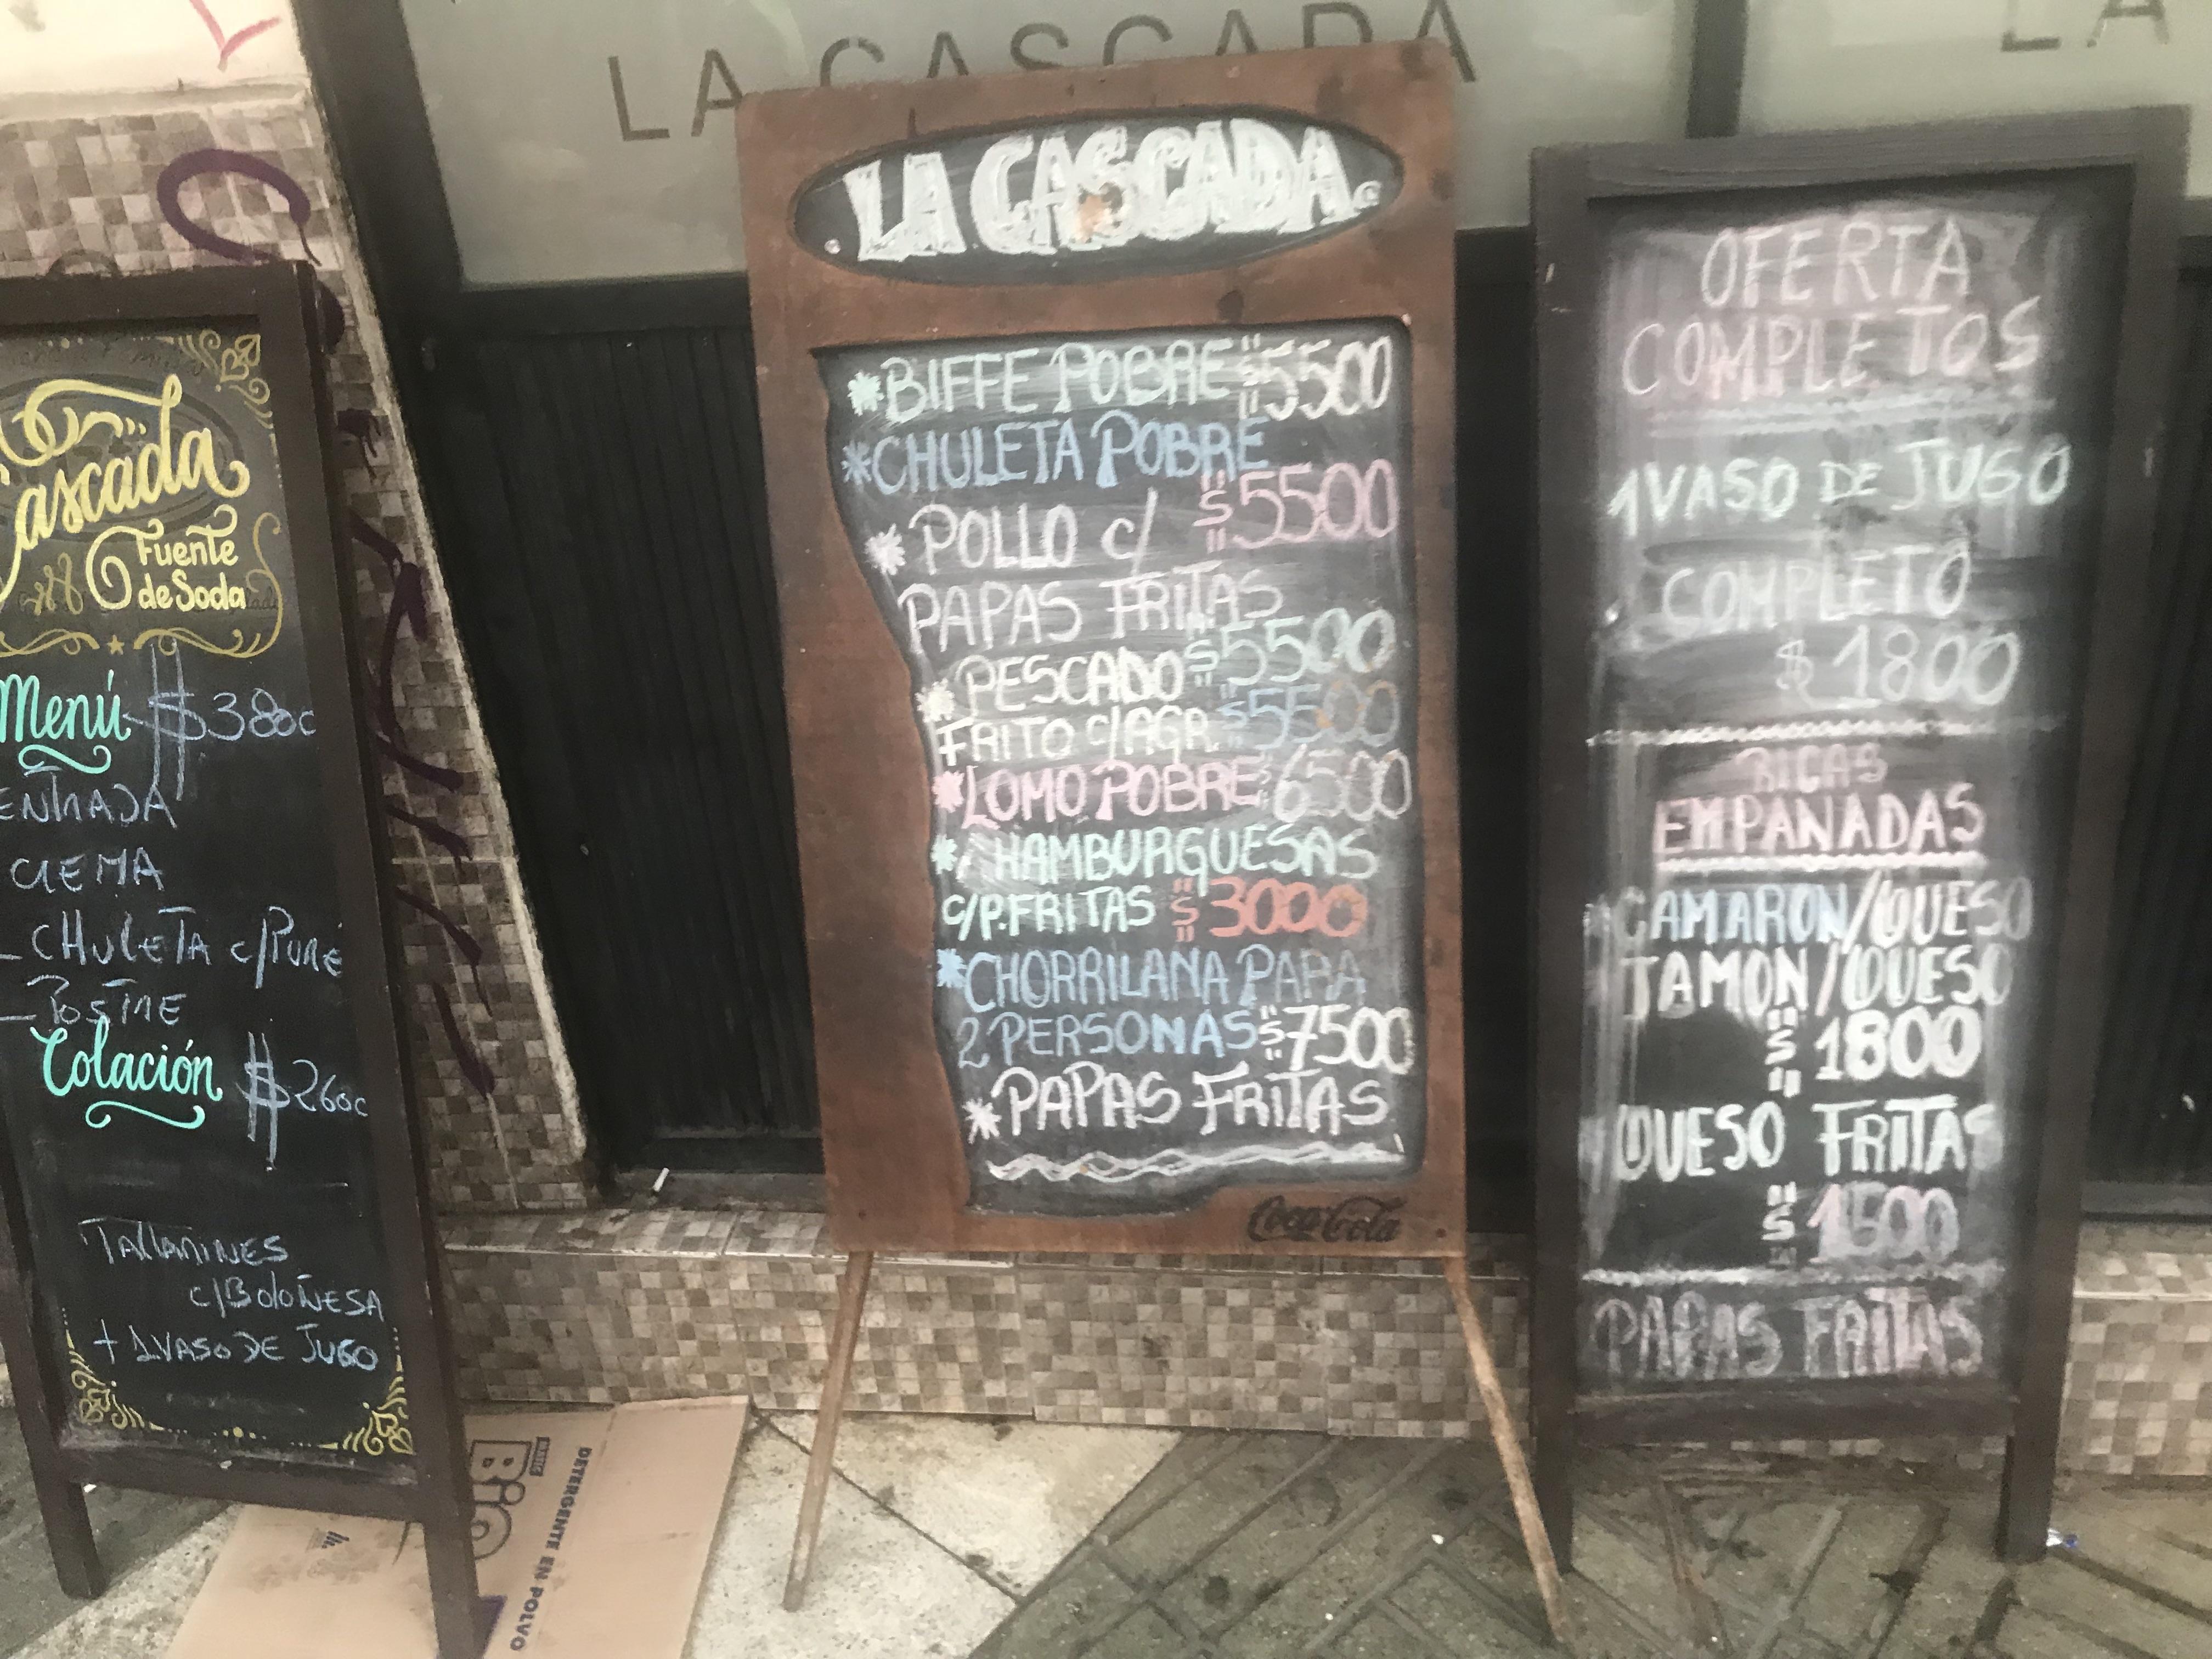 LA CASCADA
LA
Cascada
Fuente
de Soda
Menú $3800
ENTRADA
CREMA
- CHULETA C/PURÉ
- POSTRE
Colación $2600
TALLARINES
C/BOLOÑESA
+ 1 VASO DE JUGO
LA CASCADA
* BIFFE POBRE $5500
* CHULETA POBRE
$5500
* POLLO C/
PAPAS FRITAS
$5500
* PESCADO
FRITO C/AGR. $5500
* LOMO POBRE $6500
* HAMBURGUESAS
C/P.FRITAS $3000
* CHORRILANA PARA
2 PERSONAS $7500
* PAPAS FRITAS
Coca-Cola
OFERTA
COMPLETOS
1 VASO DE JUGO
COMPLETO
$1800
RICAS
EMPANADAS
CAMARON/QUESO
JAMON/QUESO
$1800
QUESO FRITAS
$1500
PAPAS FRITAS
BiO
DETERGENTE EN POLVO